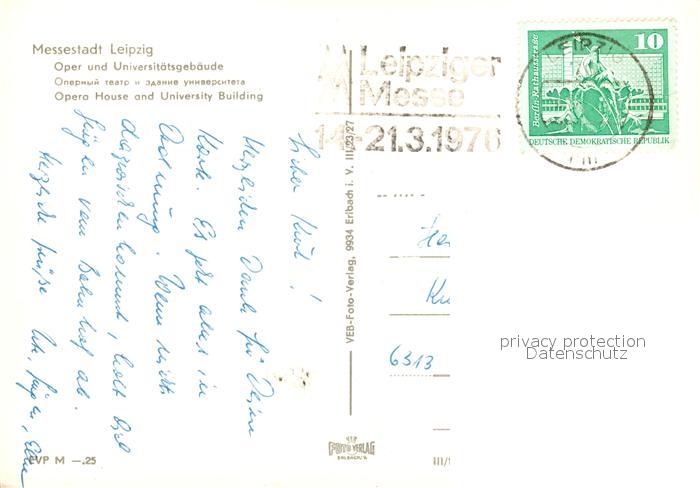 Messestadt Leipzig
Oper und Universitätsgebäude
Оперный театр и здание университета
Opera House and University Building
Lieber Kurt!
Herzlichen Dank für Deine
Karte. Es geht alles in
Ordnung. Wenn nichts
dazwischen kommt, holt Dich
Jürgen vom Bahnhof ab.
Herzliche Grüße Jürgen,
EVP M —.25
VEB-Foto-Verlag, 9934 Erlbach i. V. III/23/27
FOTO VERLAG
ERLBACH/V.
Leipziger
Messe
14.-21.3.1976
LEIPZIG
Berlin · Rathausstraße
10
DEUTSCHE DEMOKRATISCHE REPUBLIK
6313
privacy protection
Datenschutz